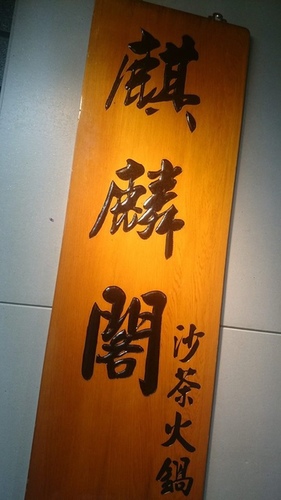 麒麟閣
沙茶火鍋